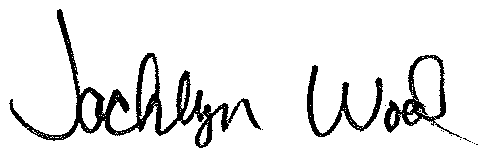 Jacklyn Wood